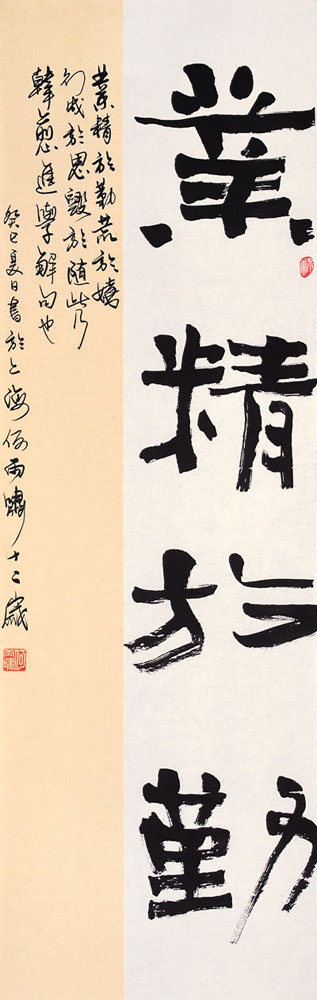 業精於勤
業精於勤荒於嬉
行成於思毀於随此乃
韓愈進學解句也
癸巳夏日書於上海何雨嘯十二歲